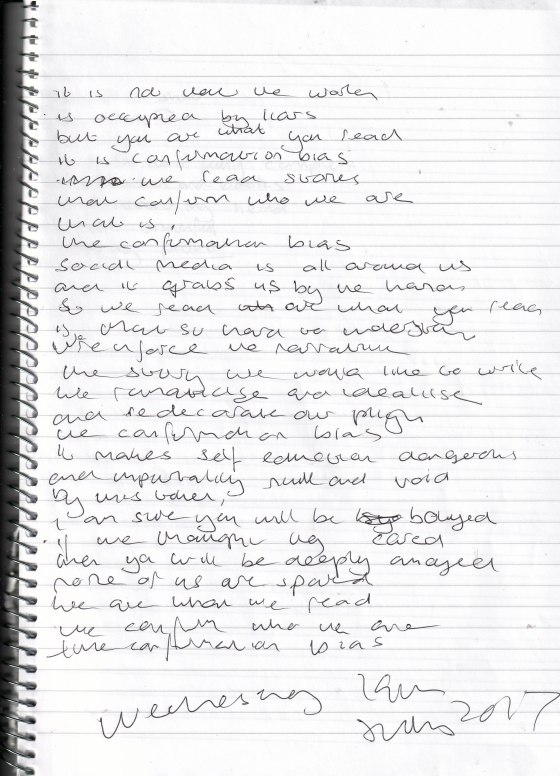 it is not that the world
is occupied by liars
but you are what you read
it is confirmation bias
we read stories
that confirm who we are
that is,
the confirmation bias
social media is all around us
and it grabs us by the hands
So we read are what you read
is that so hard to understand
We enforce the narrative
the story we would like to write
We romanticise and idealise
and redecorate our plight
the confirmation bias
It makes self education dangerous
and impartiality null and void
By this token,
I am sure you will be buoyed
if we thought they cared
then you will be deeply annoyed
none of us are spared
We are what we read
we confirm who we are
confirmation bias
Wednesday 19th
July 2017